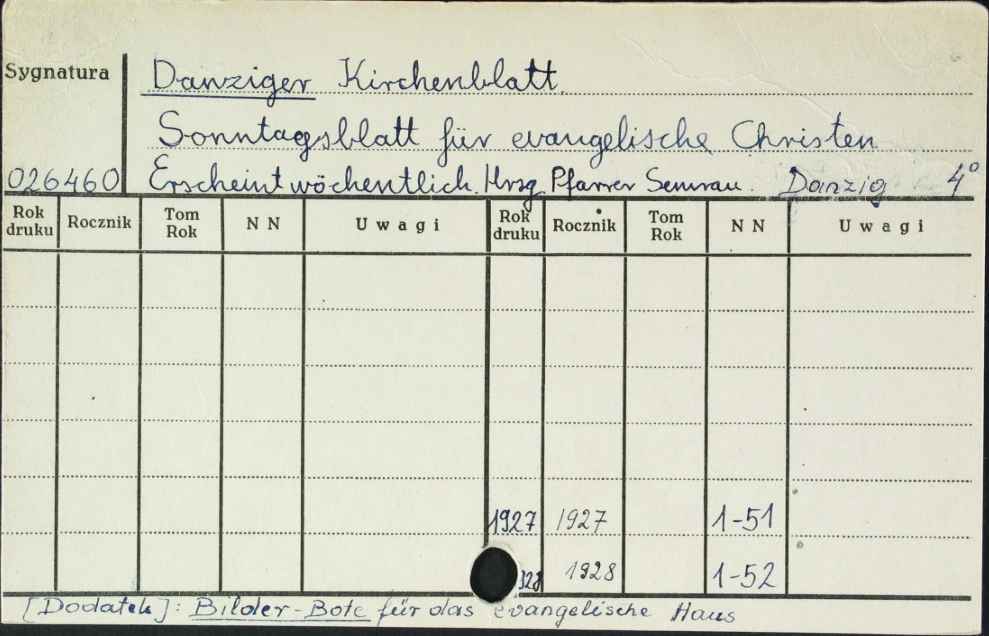 Sygnatura
Danziger Kirchenblatt.
Sonntagsblatt für evangelische Christen
026460 Erscheint wöchentlich. Hrsg Pfarrer Semrau. Danzig 4°
Rok druku Rocznik Tom Rok NN Uwagi Rok druku Rocznik Tom Rok NN Uwagi
1927 1927 1-51
928 1928 1-52
[Dodatek]: Bilder-Bote für das evangelische Haus